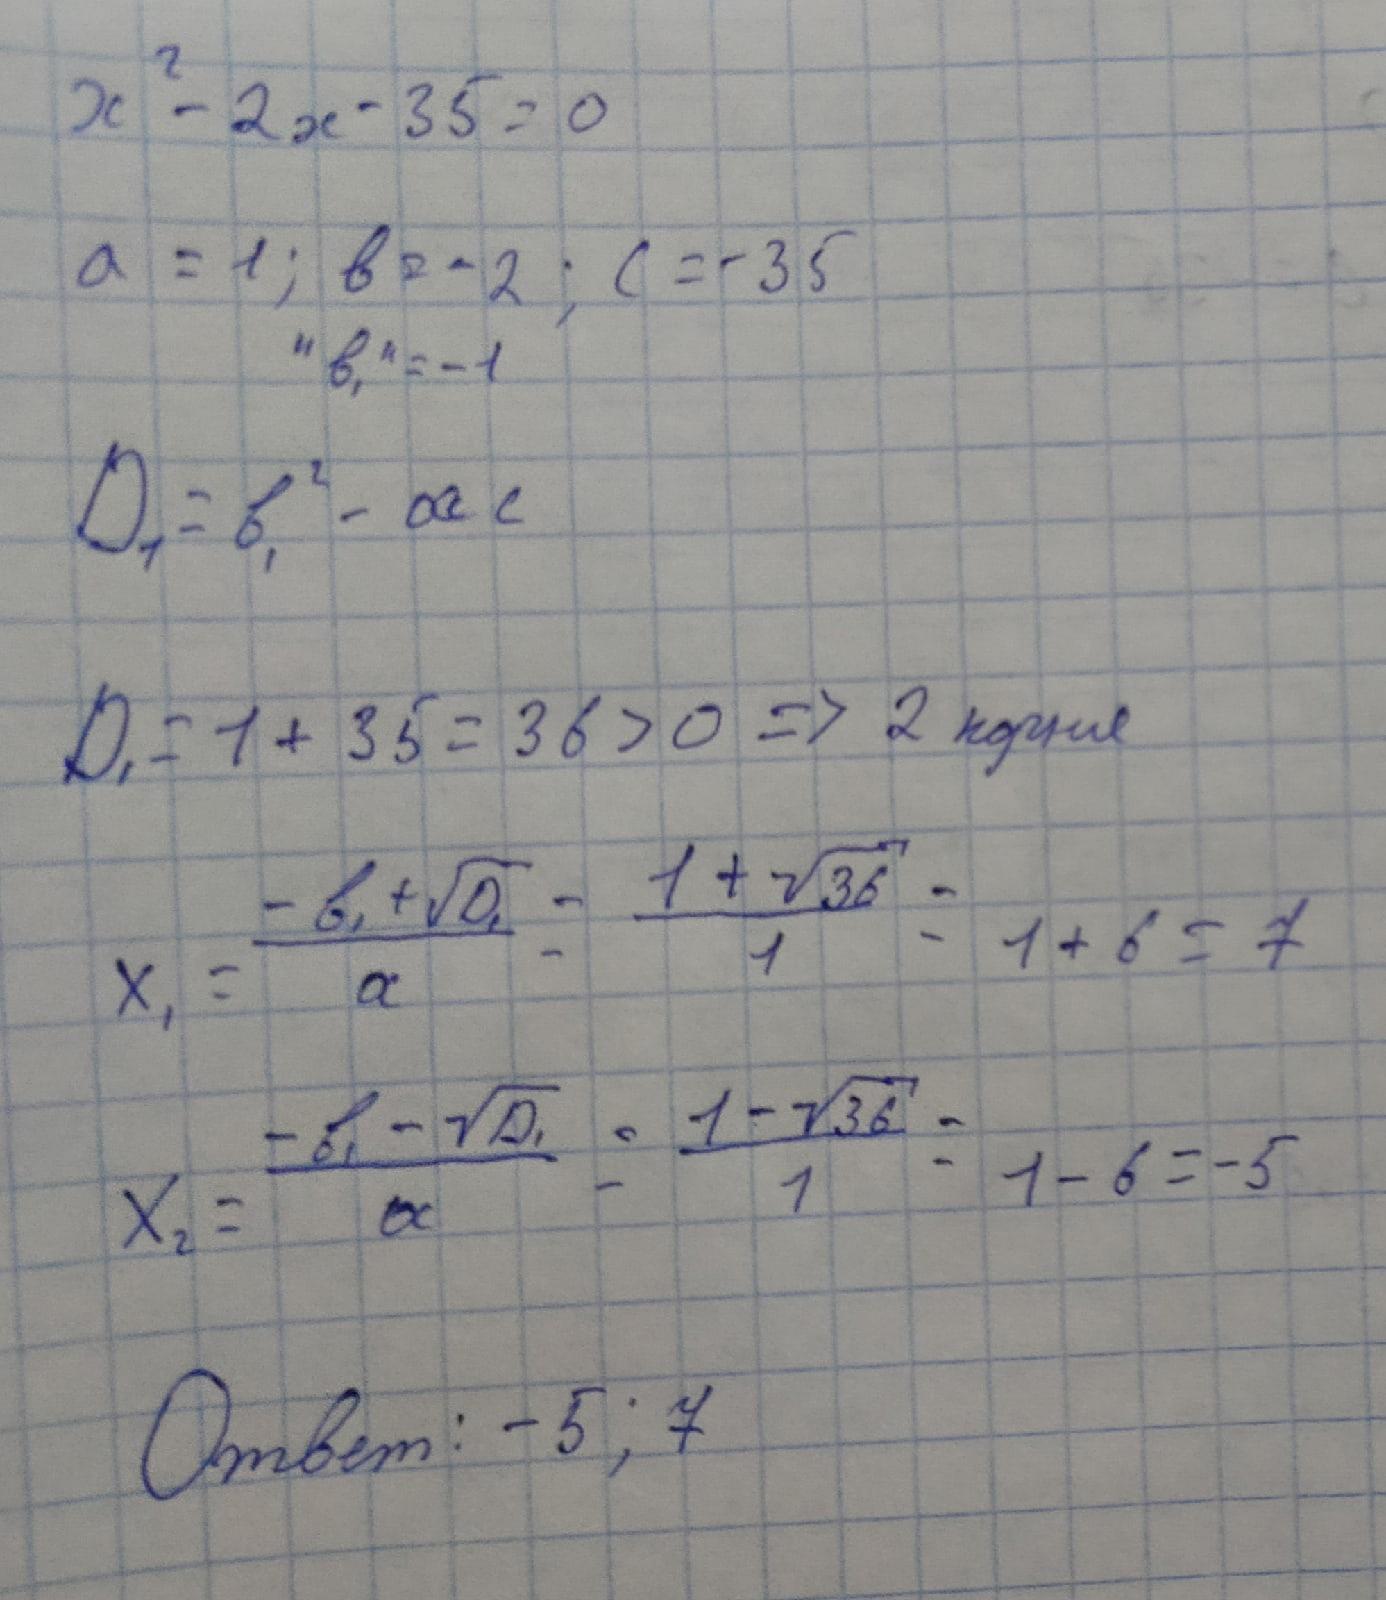 x² - 2x - 35 = 0
a = 1; в = -2; c = -35
"в₁" = -1
D₁ = в₁² - ac
D₁ = 1 + 35 = 36 > 0 => 2 корня
x₁ = (-в₁ + √D₁)/a = (1 + √36)/1 = 1 + 6 = 7
x₂ = (-в₁ - √D₁)/a = (1 - √36)/1 = 1 - 6 = -5
Ответ: -5; 7